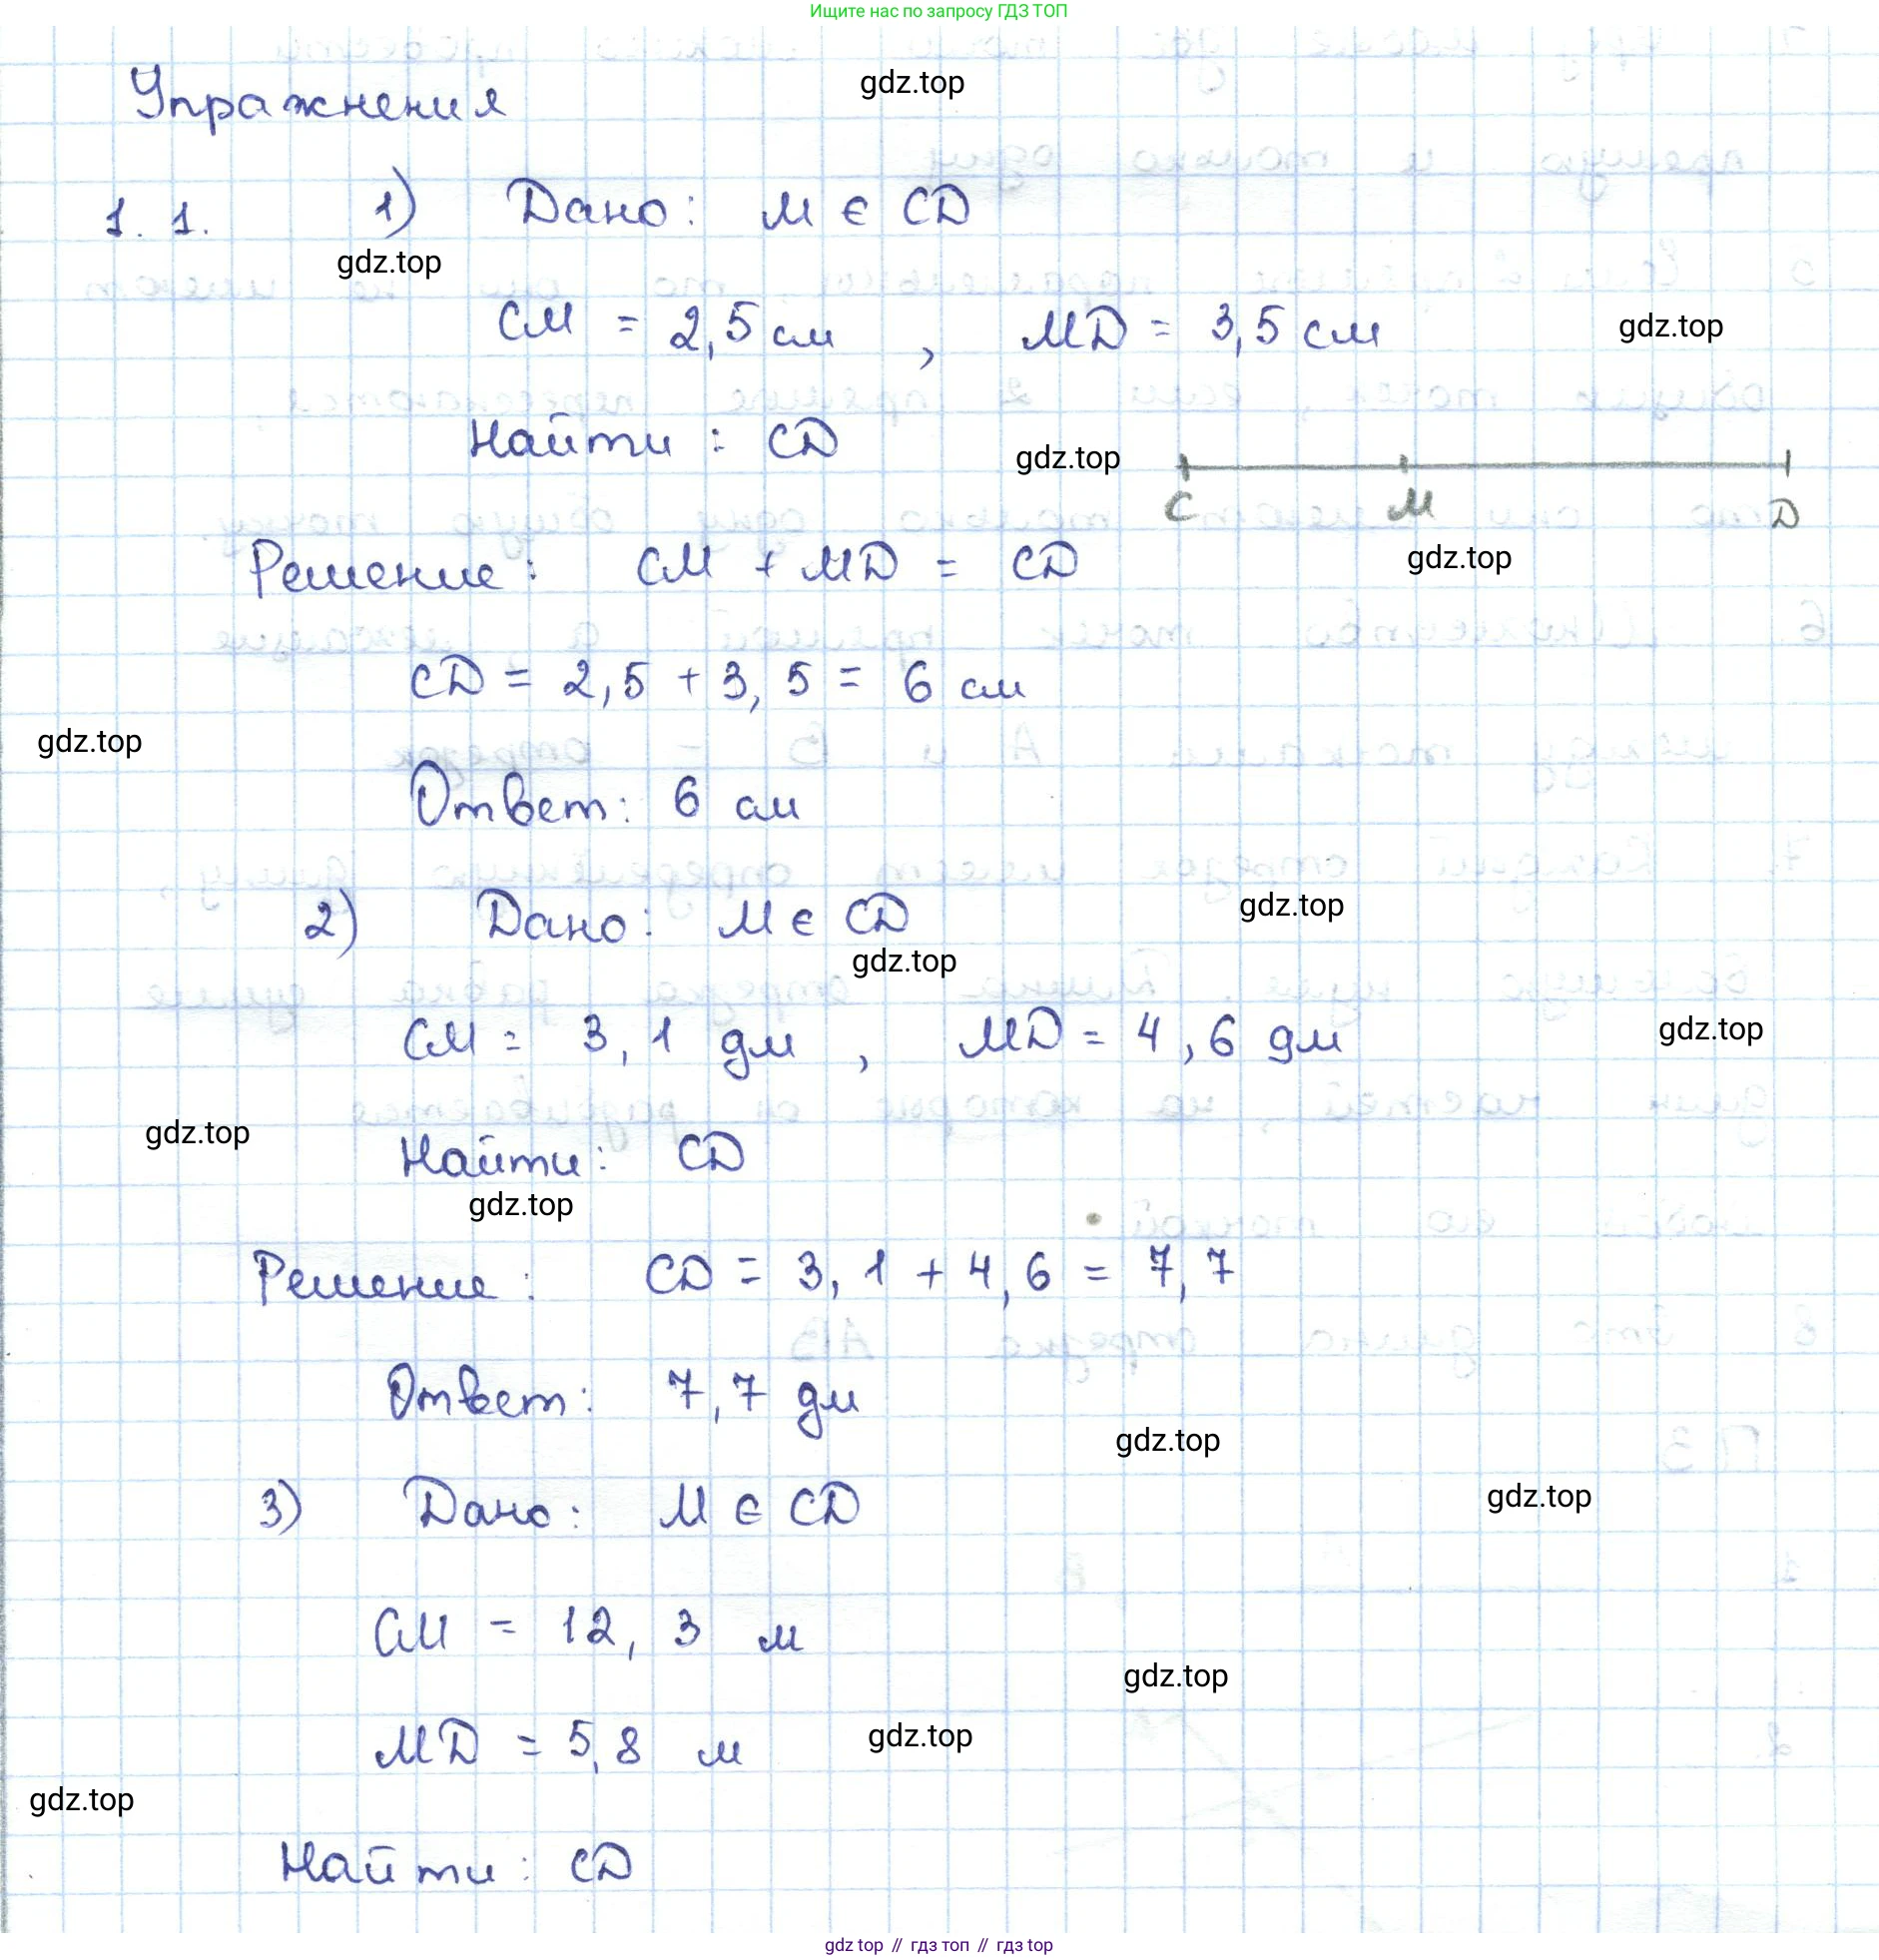 Ищите нас по запросу ГДЗ ТОП
Упражнения
gdz.top
1.1. 1) Дано: M ∈ CD
gdz.top
CM = 2,5 см , MD = 3,5 см
gdz.top
Найти : CD
gdz.top
C M D
gdz.top
Решение : CM + MD = CD
CD = 2,5 + 3,5 = 6 см
gdz.top
Ответ: 6 см
2) Дано: M ∈ CD
gdz.top
gdz.top
CM = 3,1 дм , MD = 4,6 дм
gdz.top
gdz.top
Найти: CD
gdz.top
Решение : CD = 3,1 + 4,6 = 7,7
Ответ: 7,7 дм
gdz.top
3) Дано: M ∈ CD
gdz.top
CM = 12,3 м
gdz.top
MD = 5,8 м
gdz.top
gdz.top
Найти : CD
gdz top // гдз топ // гдз top